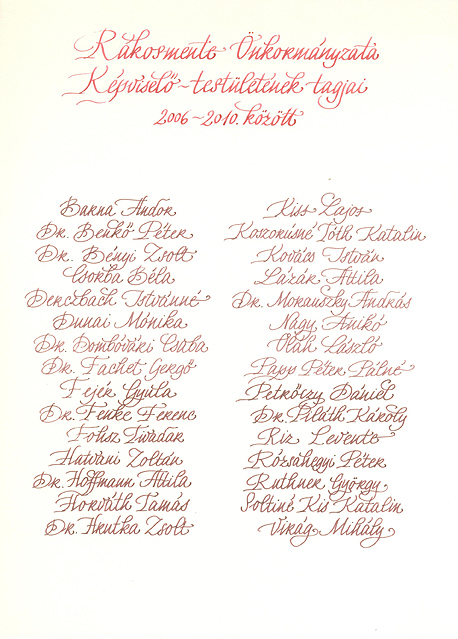 Rákosmente Önkormányzata
Képviselő-testületének tagjai
2006-2010. között
Barna Andor
Dr. Benkő Péter
Dr. Bényi Zsolt
Csorba Béla
Denczbach Istvánné
Dunai Mónika
Dr. Dombóvári Csaba
Dr. Fachet Gergő
Fejér Gyula
Dr. Fenke Ferenc
Fohsz Tivadar
Hatvani Zoltán
Dr. Hoffmann Attila
Horváth Tamás
Dr. Hrutka Zsolt
Kiss Lajos
Koszorúsné Tóth Katalin
Kovács István
Lázár Attila
Dr. Morauszky András
Nagy Anikó
Oláh László
Papp Péter Pálné
Petrőczy Dániel
Dr. Piláth Károly
Riz Levente
Rózsahegyi Péter
Ruthner György
Soltiné Kis Katalin
Virág Mihály